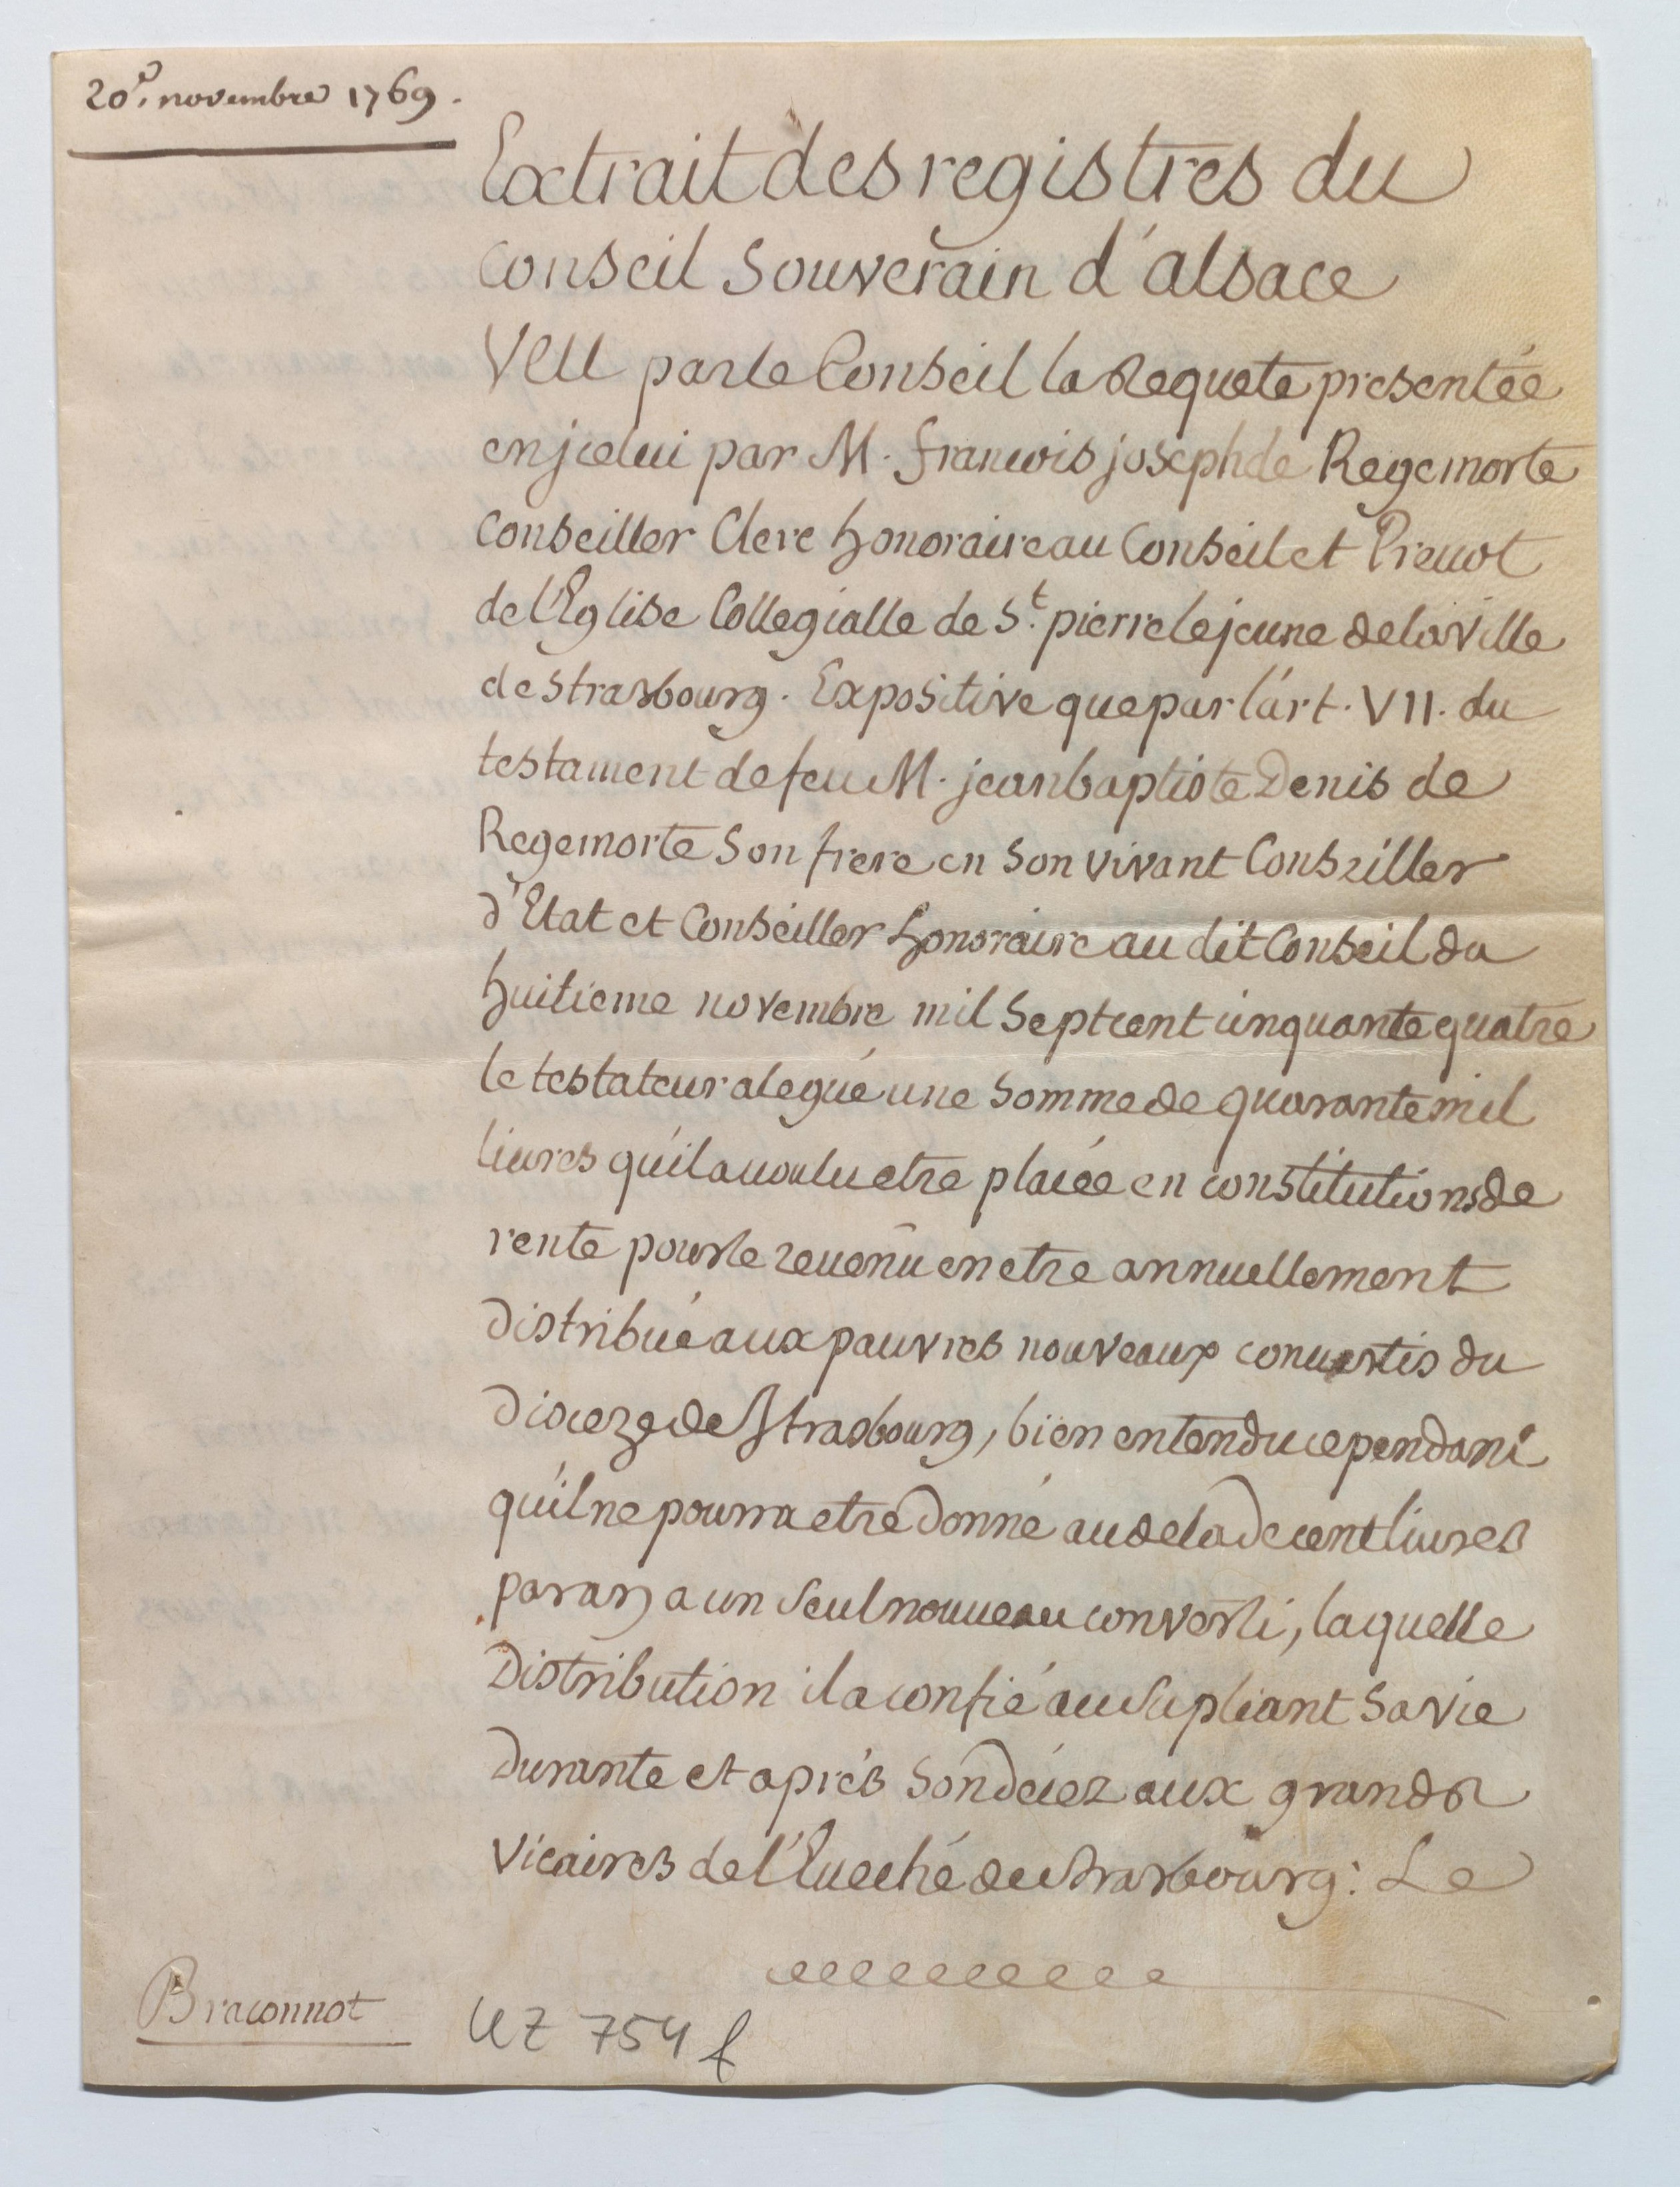 20.e novembre 1769.
Extrait des registres du
Conseil Souverain d'alsace
Veu par le Conseil la Requete presentée
en jcelui par M. francois joseph de Regemorte
Conseiller Clerc honoraire au Conseil et Prevot
de l'Eglise Collegialle de S.t pierre le jeune de la Ville
de Strasbourg. Expositive que par l'art. VII. du
testament de feu M. jean baptiste Denis de
Regemorte Son frere en Son vivant Conseiller
d'Etat et Conseiller honoraire au dit Conseil du
huitieme novembre mil Sept cent cinquante quatre
le testateur a legué une Somme de quarante mil
livres qu'il a voulu etre placée en constitutions de
rente pour le revenu en etre annuellement
distribué aux pauvres nouveaux convertis du
Dioceze de Strasbourg, bien entendu cependant
qu'il ne pourra etre donné au dela de cent livres
par an a un Seul nouveau converti, laquelle
Distribution il a confié au Supliant Sa vie
Durante et aprés Son décez aux grands
Vicaires de l'Eveché de Strasbourg: Le
Braconnot
UZ 754 f